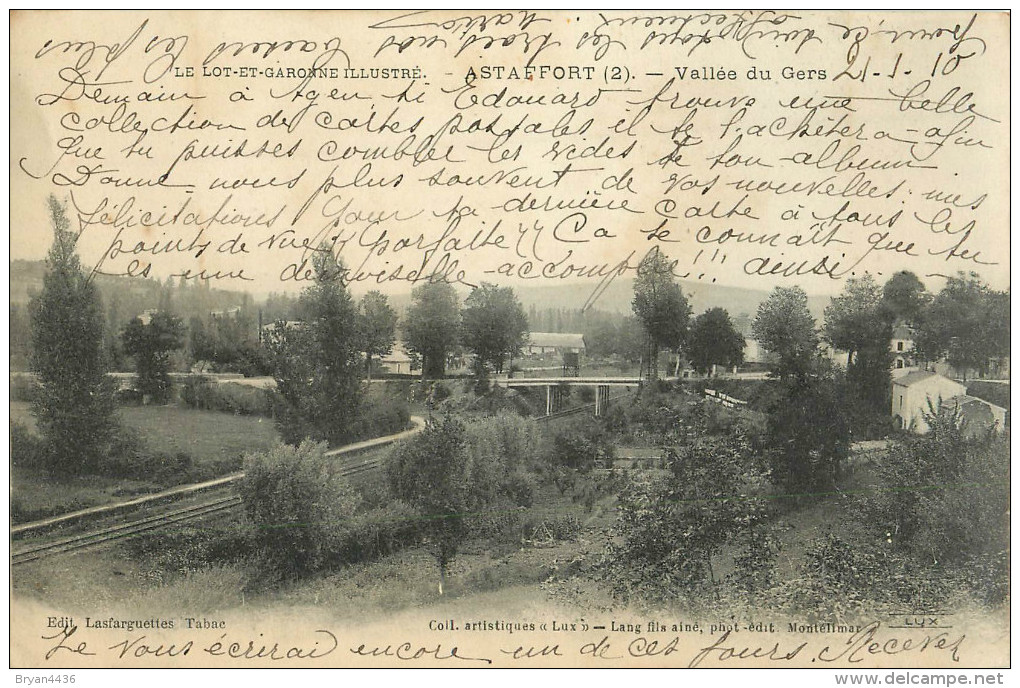 pour ce soir, tous les trois nos affectueux.
plus les baisers
LE LOT-ET-GARONNE ILLUSTRÉ. - ASTAFFORT (2). — Vallée du Gers
21-1-10
Demain à Agen si Edouard trouve une belle
collection de cartes postales il te l'achètera - afin
que tu puisses combler les vides de ton album
Donne-nous plus souvent de vos nouvelles. mes
félicitations pour ta dernière carte à tous les
points de vue, "parfaite" Ca te connaît que tu
es une demoiselle accomplie!! ainsi
Edit. Lasfarguettes Tabac
Coll. artistiques « Lux » — Lang fils aîné, phot-édit. Montélimar
LUX
Je vous écrirai encore un de ces jours. Recevez
Bryan4436
www.delcampe.net